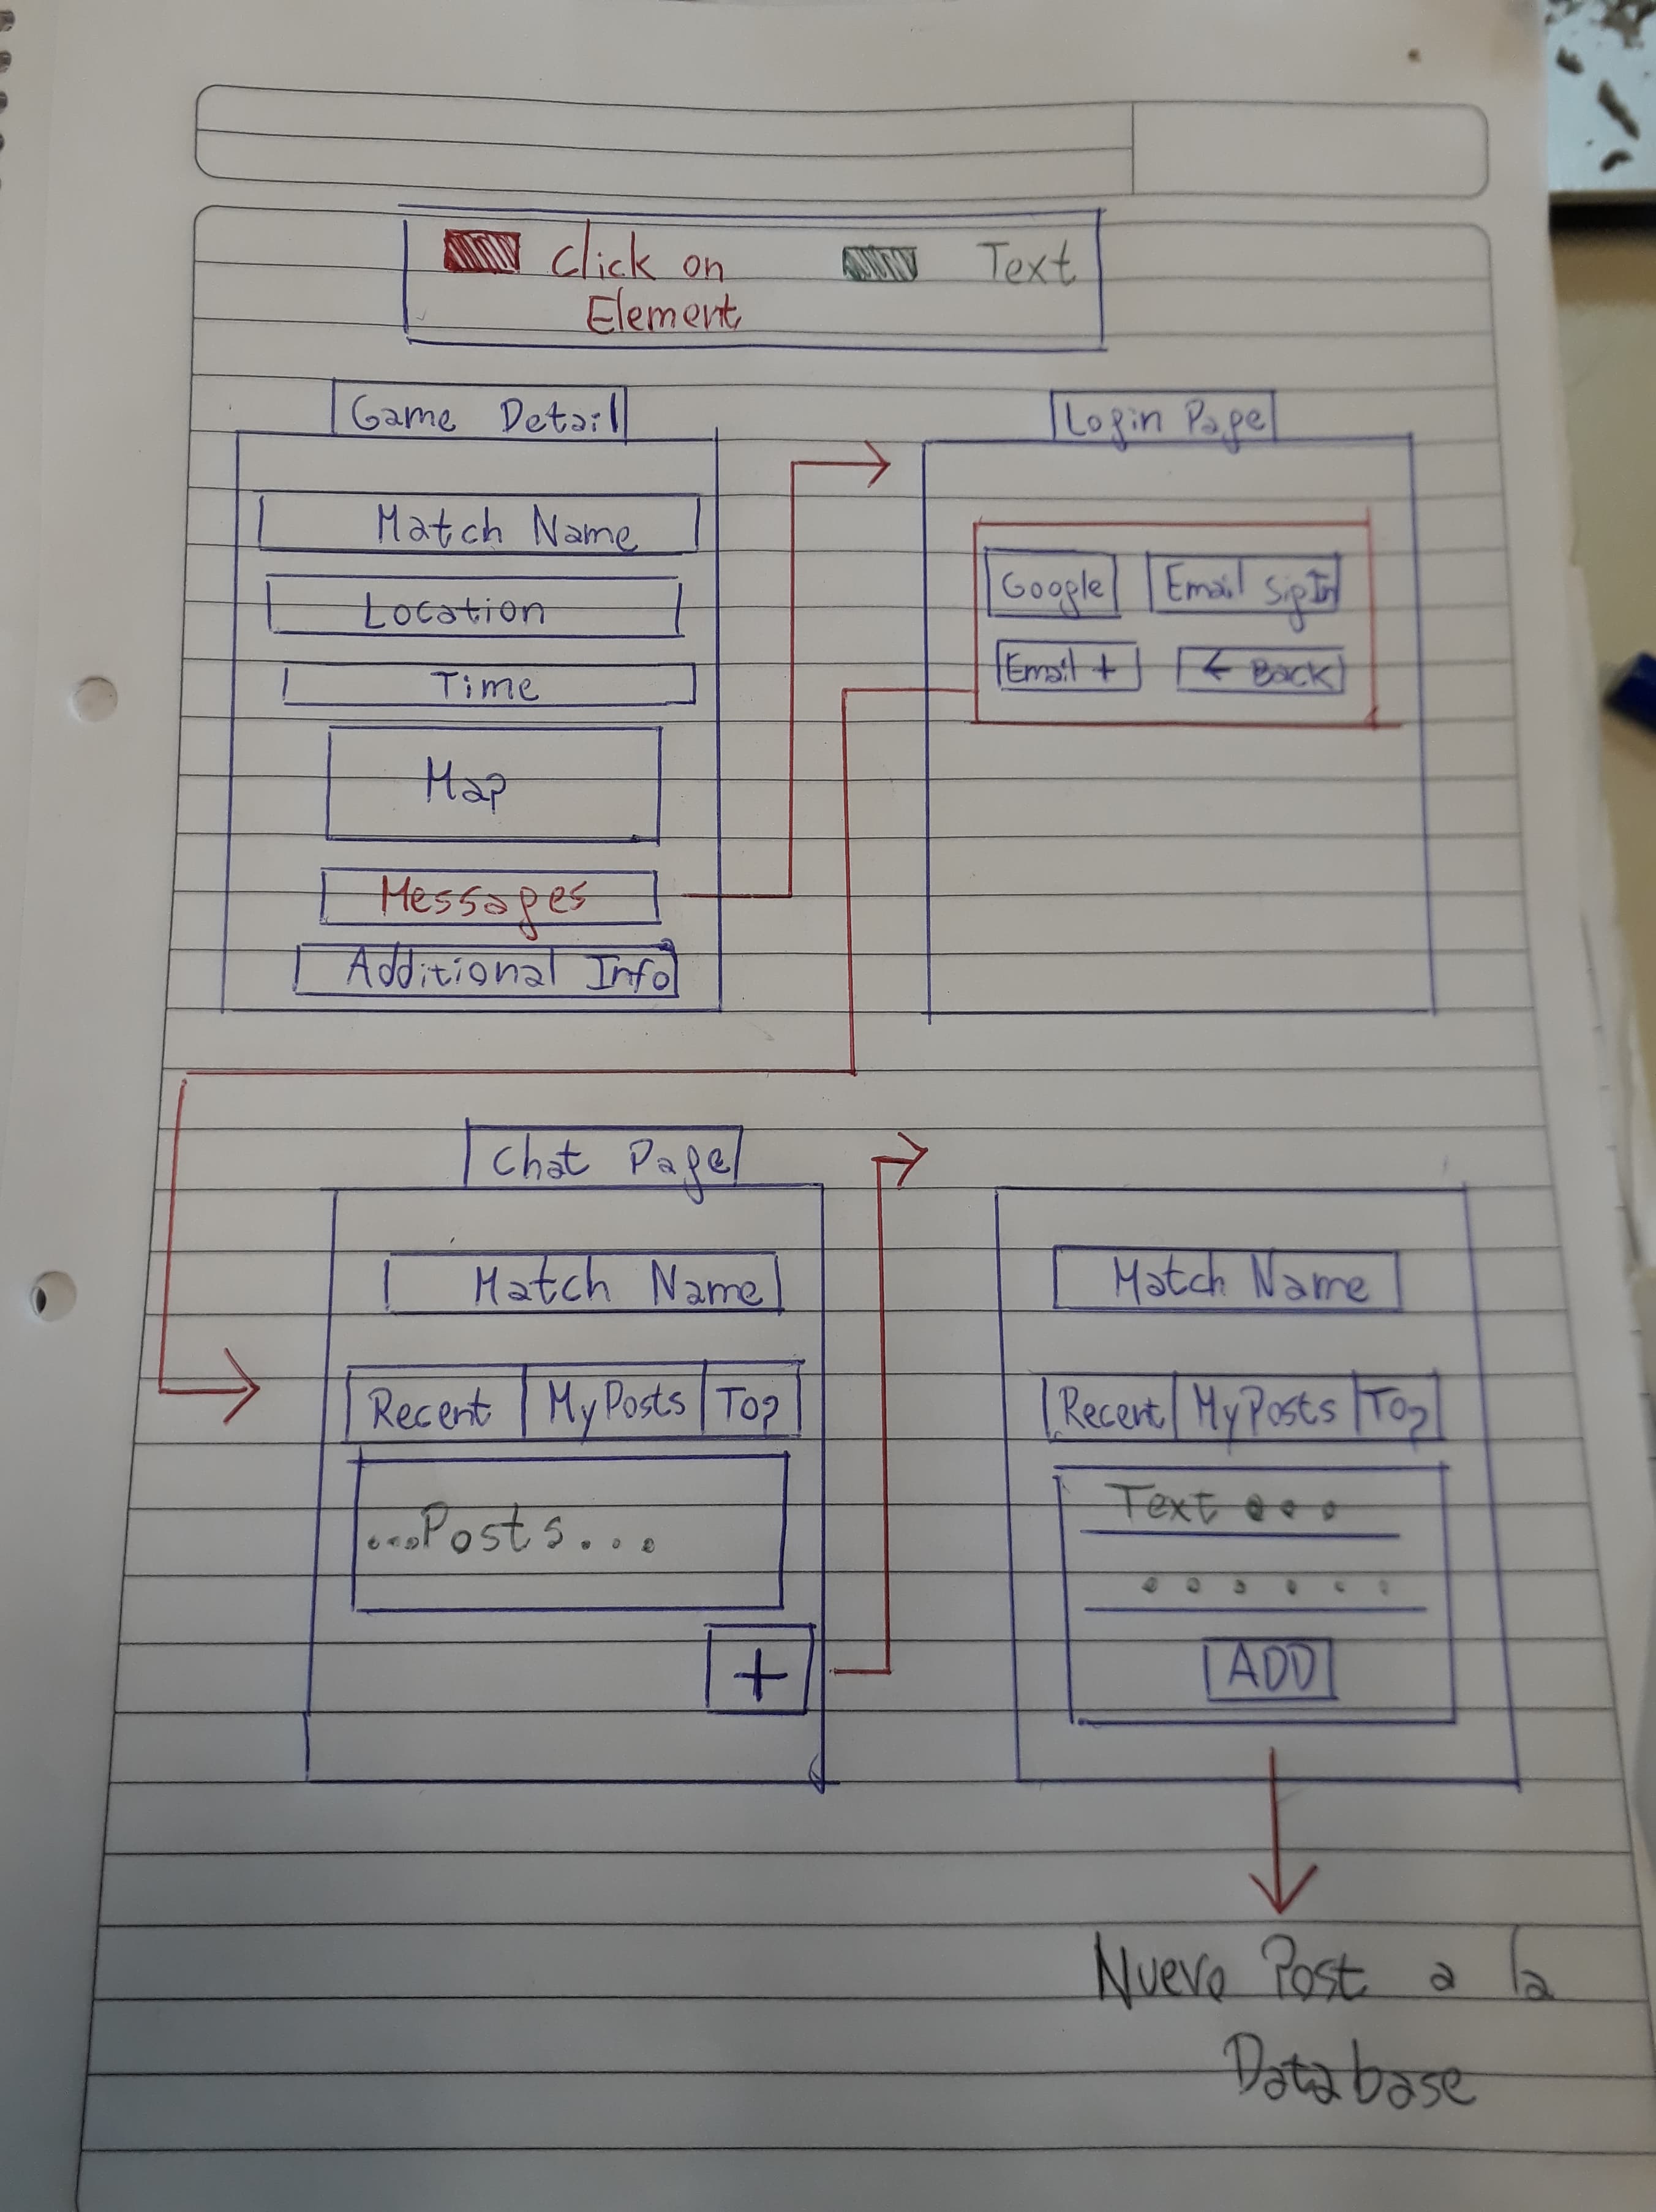 Click on
Element
Text
Game Detail
Match Name
Location
Time
Map
Messages
Additional Info
Login Page
Google
Email SignIn
Email +
← Back
Chat Page
Match Name
Recent MyPosts Top
...Posts...
+
Match Name
Recent MyPosts Top
Text ...
......
ADD
Nuevo Post a la
Database